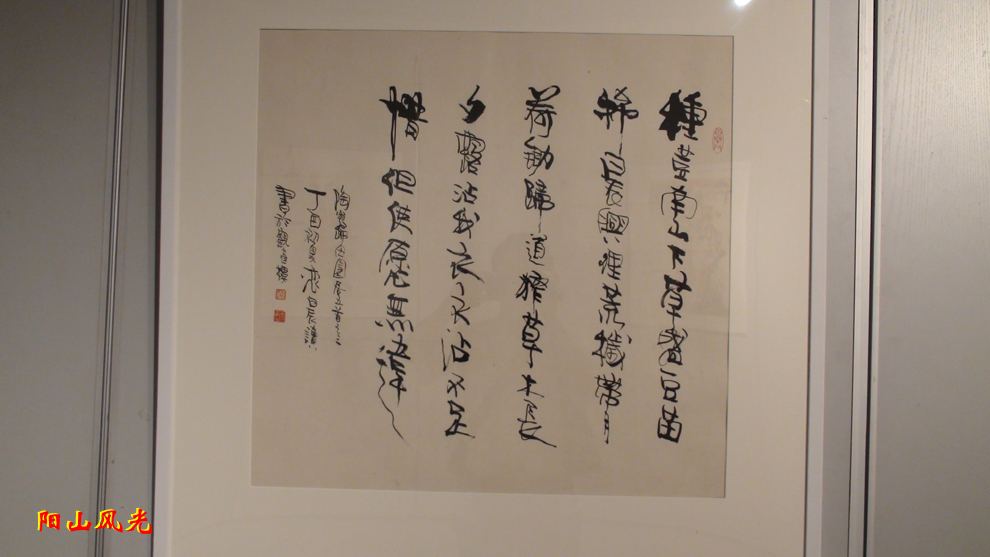 種荳南山下草盛豆苗
稀晨興理荒穢帶月
荷鋤歸道狹草木長
夕露沾我衣衣沾不足
惜但使願無違
陶淵明歸田園居
丁酉
阳山风光